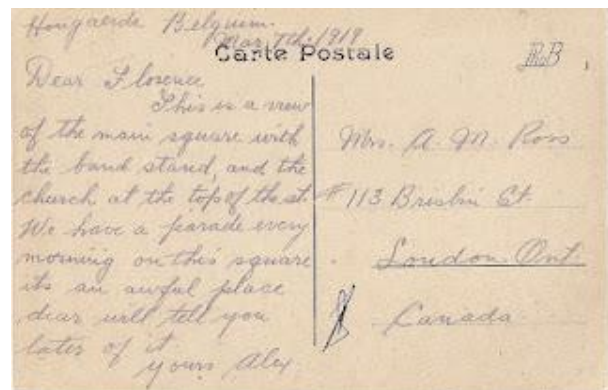 Hougaerde Belgium.
Mar 7th. 1919
Carte Postale
Dear Florence
This is a view
of the main square with
the band stand, and the
church at the top of the st.
We have a parade every
morning on this square
its an awful place
dear will tell you
later of it
yours Alex
Mrs. A. M. Ross
# 113 Briskin St.
London. Ont
Canada